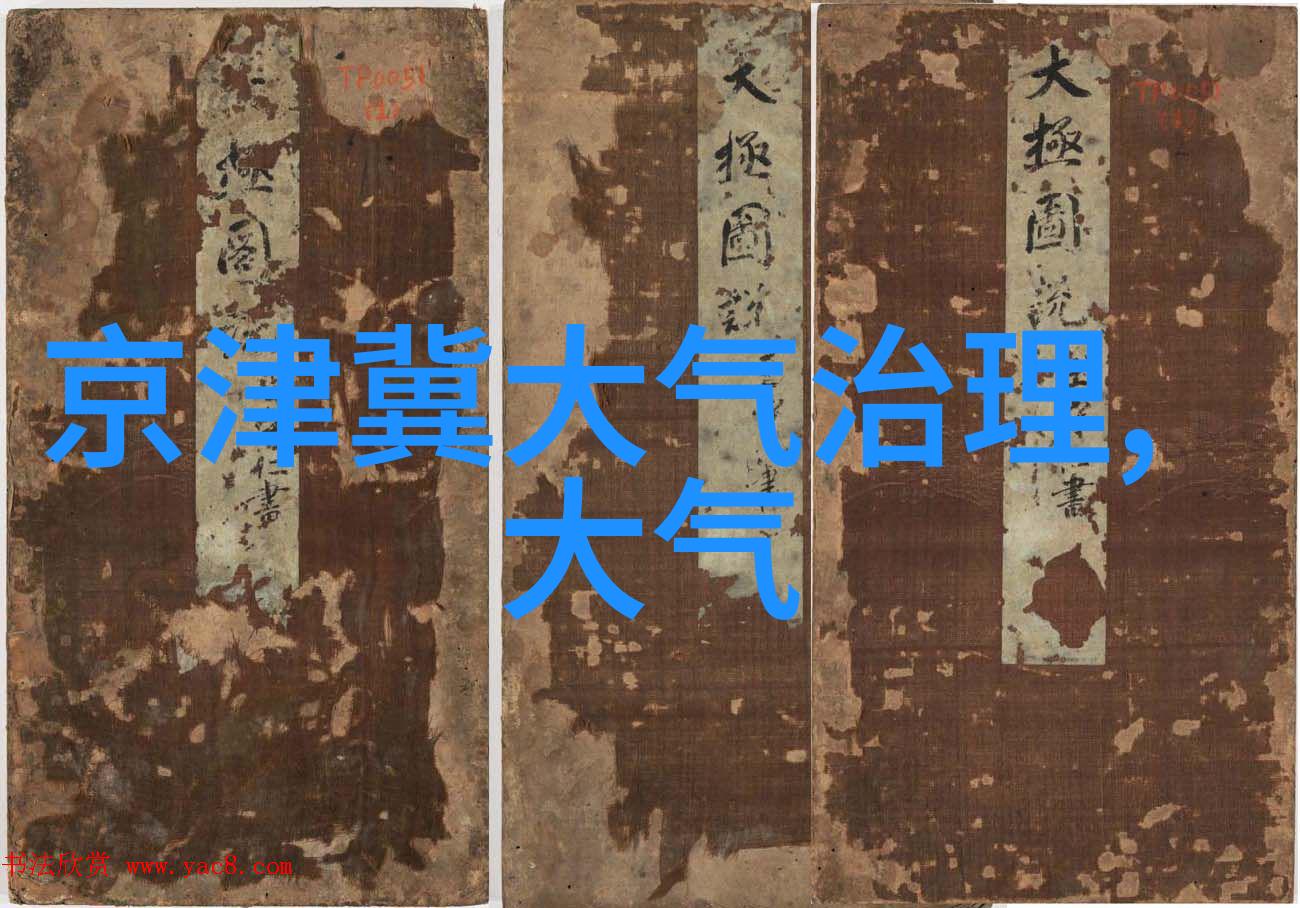 TP0051
(1)
極圖
書
大極圖説
大極圖説
書
京津冀大气治理,
大气
书法欣赏 www.yac8.com